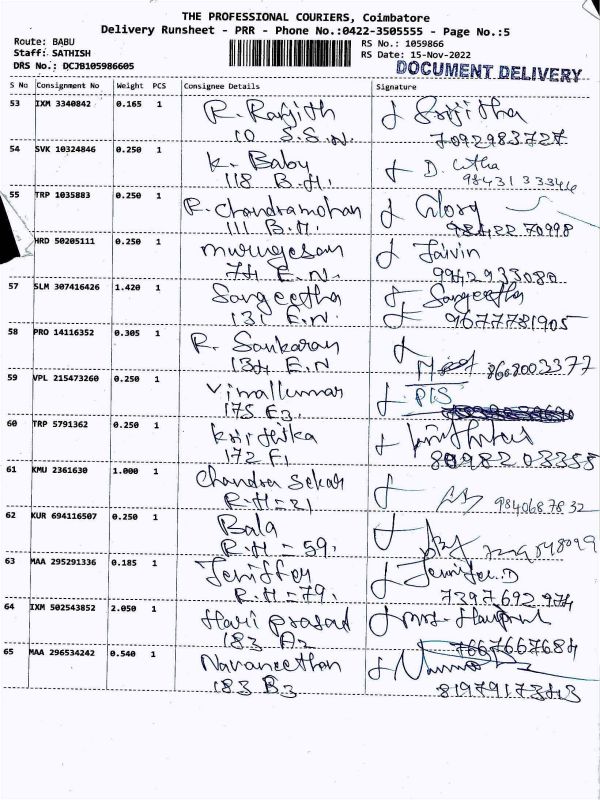 THE PROFESSIONAL COURIERS, Coimbatore
Delivery Runsheet - PRR - Phone No.:0422-3505555 - Page No.:5
Route: BABU
Staff: SATHISH
DRS No.: DCJB105986605
RS No.: 1059866
RS Date: 15-Nov-2022
DOCUMENT DELIVERY
S No Consignment No Weight PCS Consignee Details Signature
53 IXM 3340842 0.165 1 R. Ranjith Srijitha
10 S.S.N. 7092983727
54 SVK 10324846 0.250 1 K. Baby D.
118 B.H. 9843133344
55 TRP 1035883 0.250 1 P. Chandramohan Glory
111 B.H. 70998
HRD 50205111 0.250 1 murugesan Jaivin
74 E.N. 9942933080
57 SLM 307416426 1.420 1 Sangeetha Sangeetha
131 E.N. 9677781905
58 PRO 14116352 0.305 1 R. Sankaran
134 E.N
59 VPL 215473260 0.250 1 Vimalkumar P15
175 E3.
60 TRP 5791362 0.250 1 Krithika
172 F1 8098203358
61 KMU 2361630 1.000 1 Chandra Sekar
R.H=21 9840687832
62 KUR 694116507 0.250 1 Bala
R.H=59.
63 MAA 295291336 0.185 1 Jeniffer Jennifer.D
R.H=79. 7397692974
64 IXM 502543852 2.050 1 Hari prasad
183 A2 7667667684
65 MAA 296534242 0.540 1 Navaneethan
183 B3